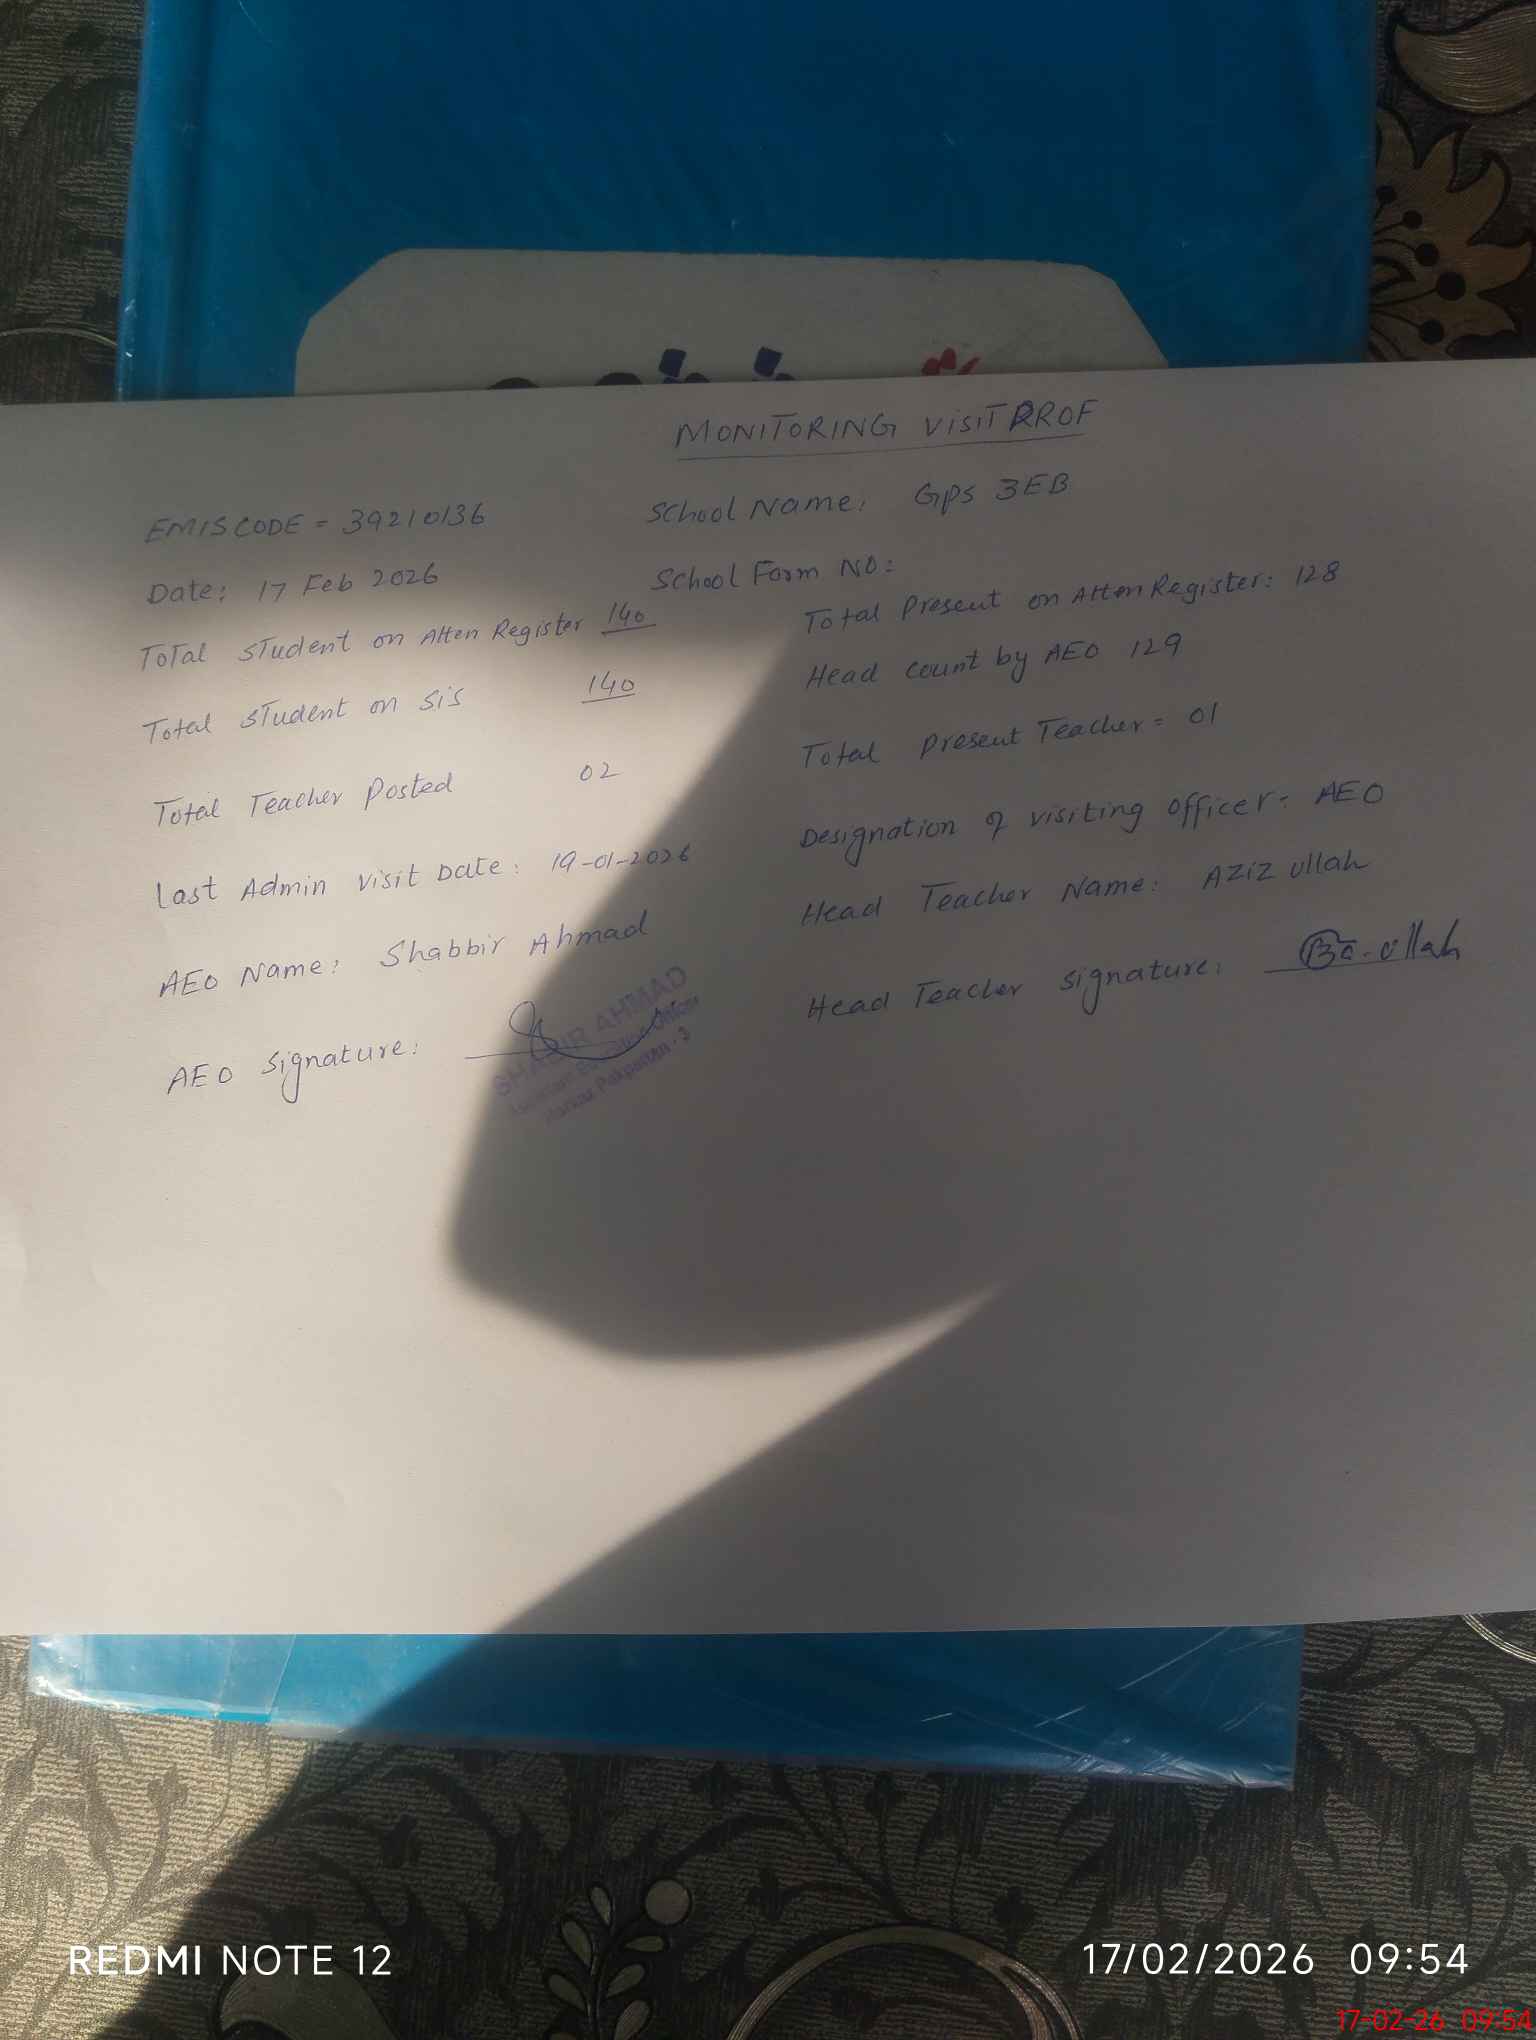 MONITORING VISIT PROF
EMIS CODE = 39210136 School Name: GPS 3EB
Date: 17 Feb 2026 School Form NO:
Total Student on Atten Register 140 Total Present on Atten Register: 128
Total Student on SiS 140 Head count by AEO 129
Total Teacher Posted 02 Total Present Teacher = 01
Last Admin visit Date: 19-01-2026 Designation of visiting officer: AEO
AEO Name: Shabbir Ahmad Head Teacher Name: Aziz ullah
AEO Signature: Head Teacher Signature: ullah
SHABBIR AHMAD
Assistant Education Officer
Markaz Pakpattan-3
REDMI NOTE 12 17/02/2026 09:54
17-02-26 09:54